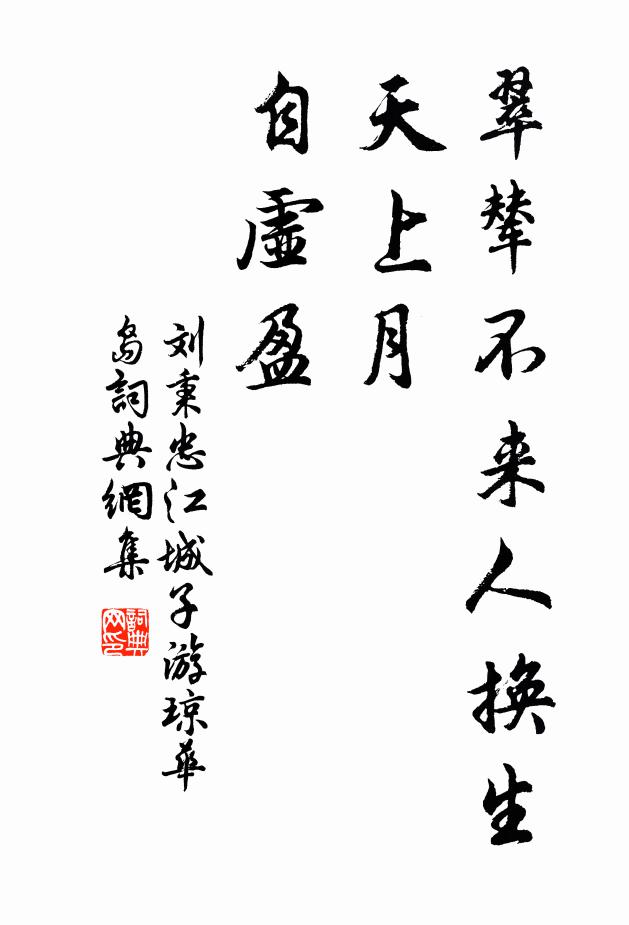 翠輦不来人換生
天上月
自虛盈
刘秉忠江城子游琼華
岛詞典網集
詞典網印